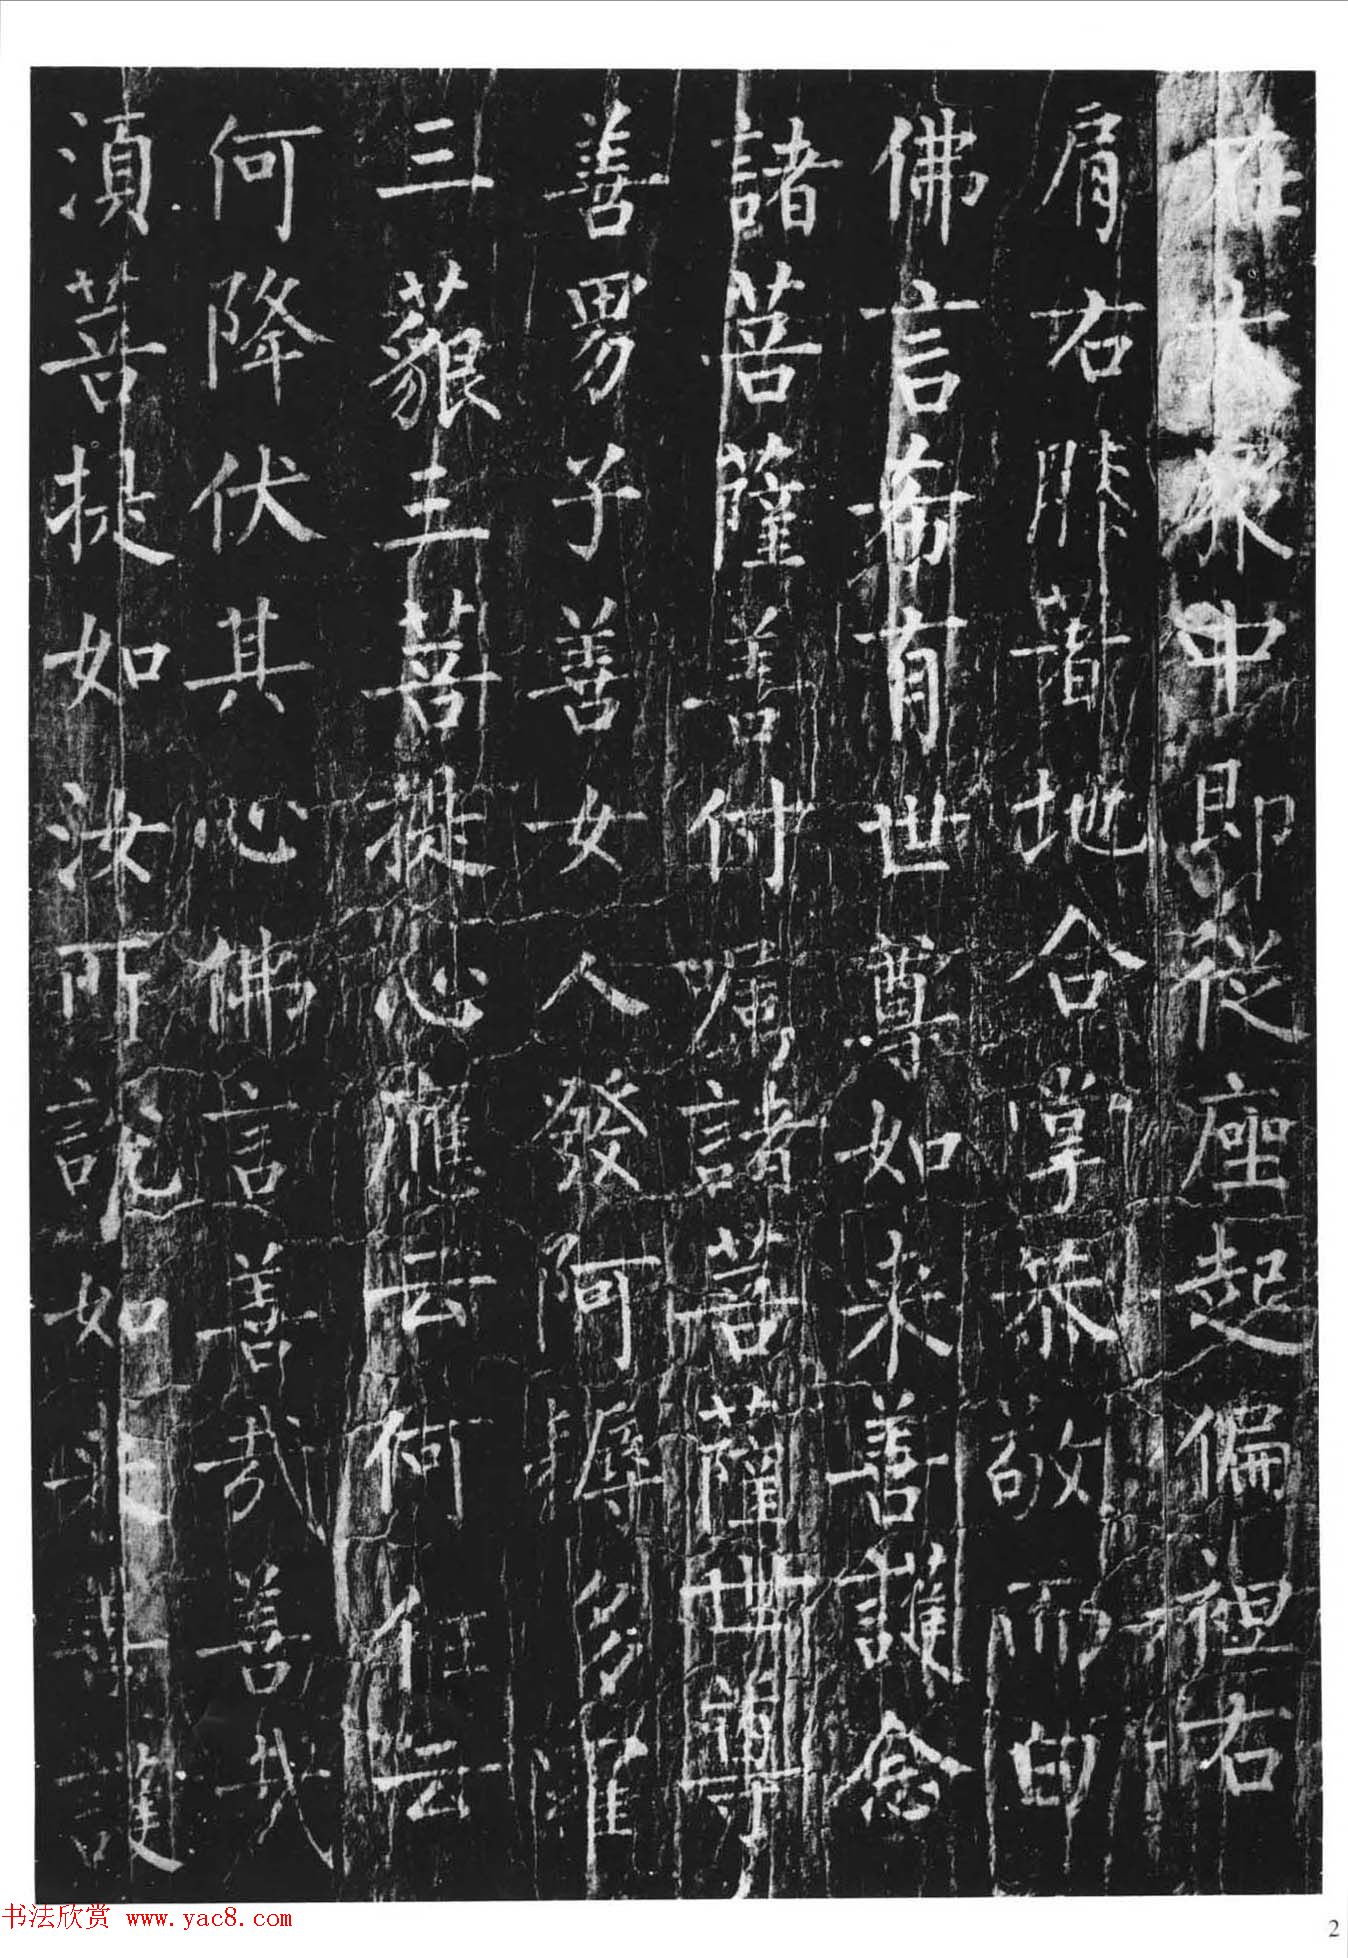 在大衆中即從座起偏袒右
肩右膝著地合掌恭敬而白
佛言希有世尊如来善護念
諸菩薩善付嘱諸菩薩世尊
善男子善女人發阿耨多羅
三藐三菩提心應云何住云
何降伏其心佛言善哉善哉
湏菩提如汝所說如来善護
书法欣赏 www.yac8.com
2